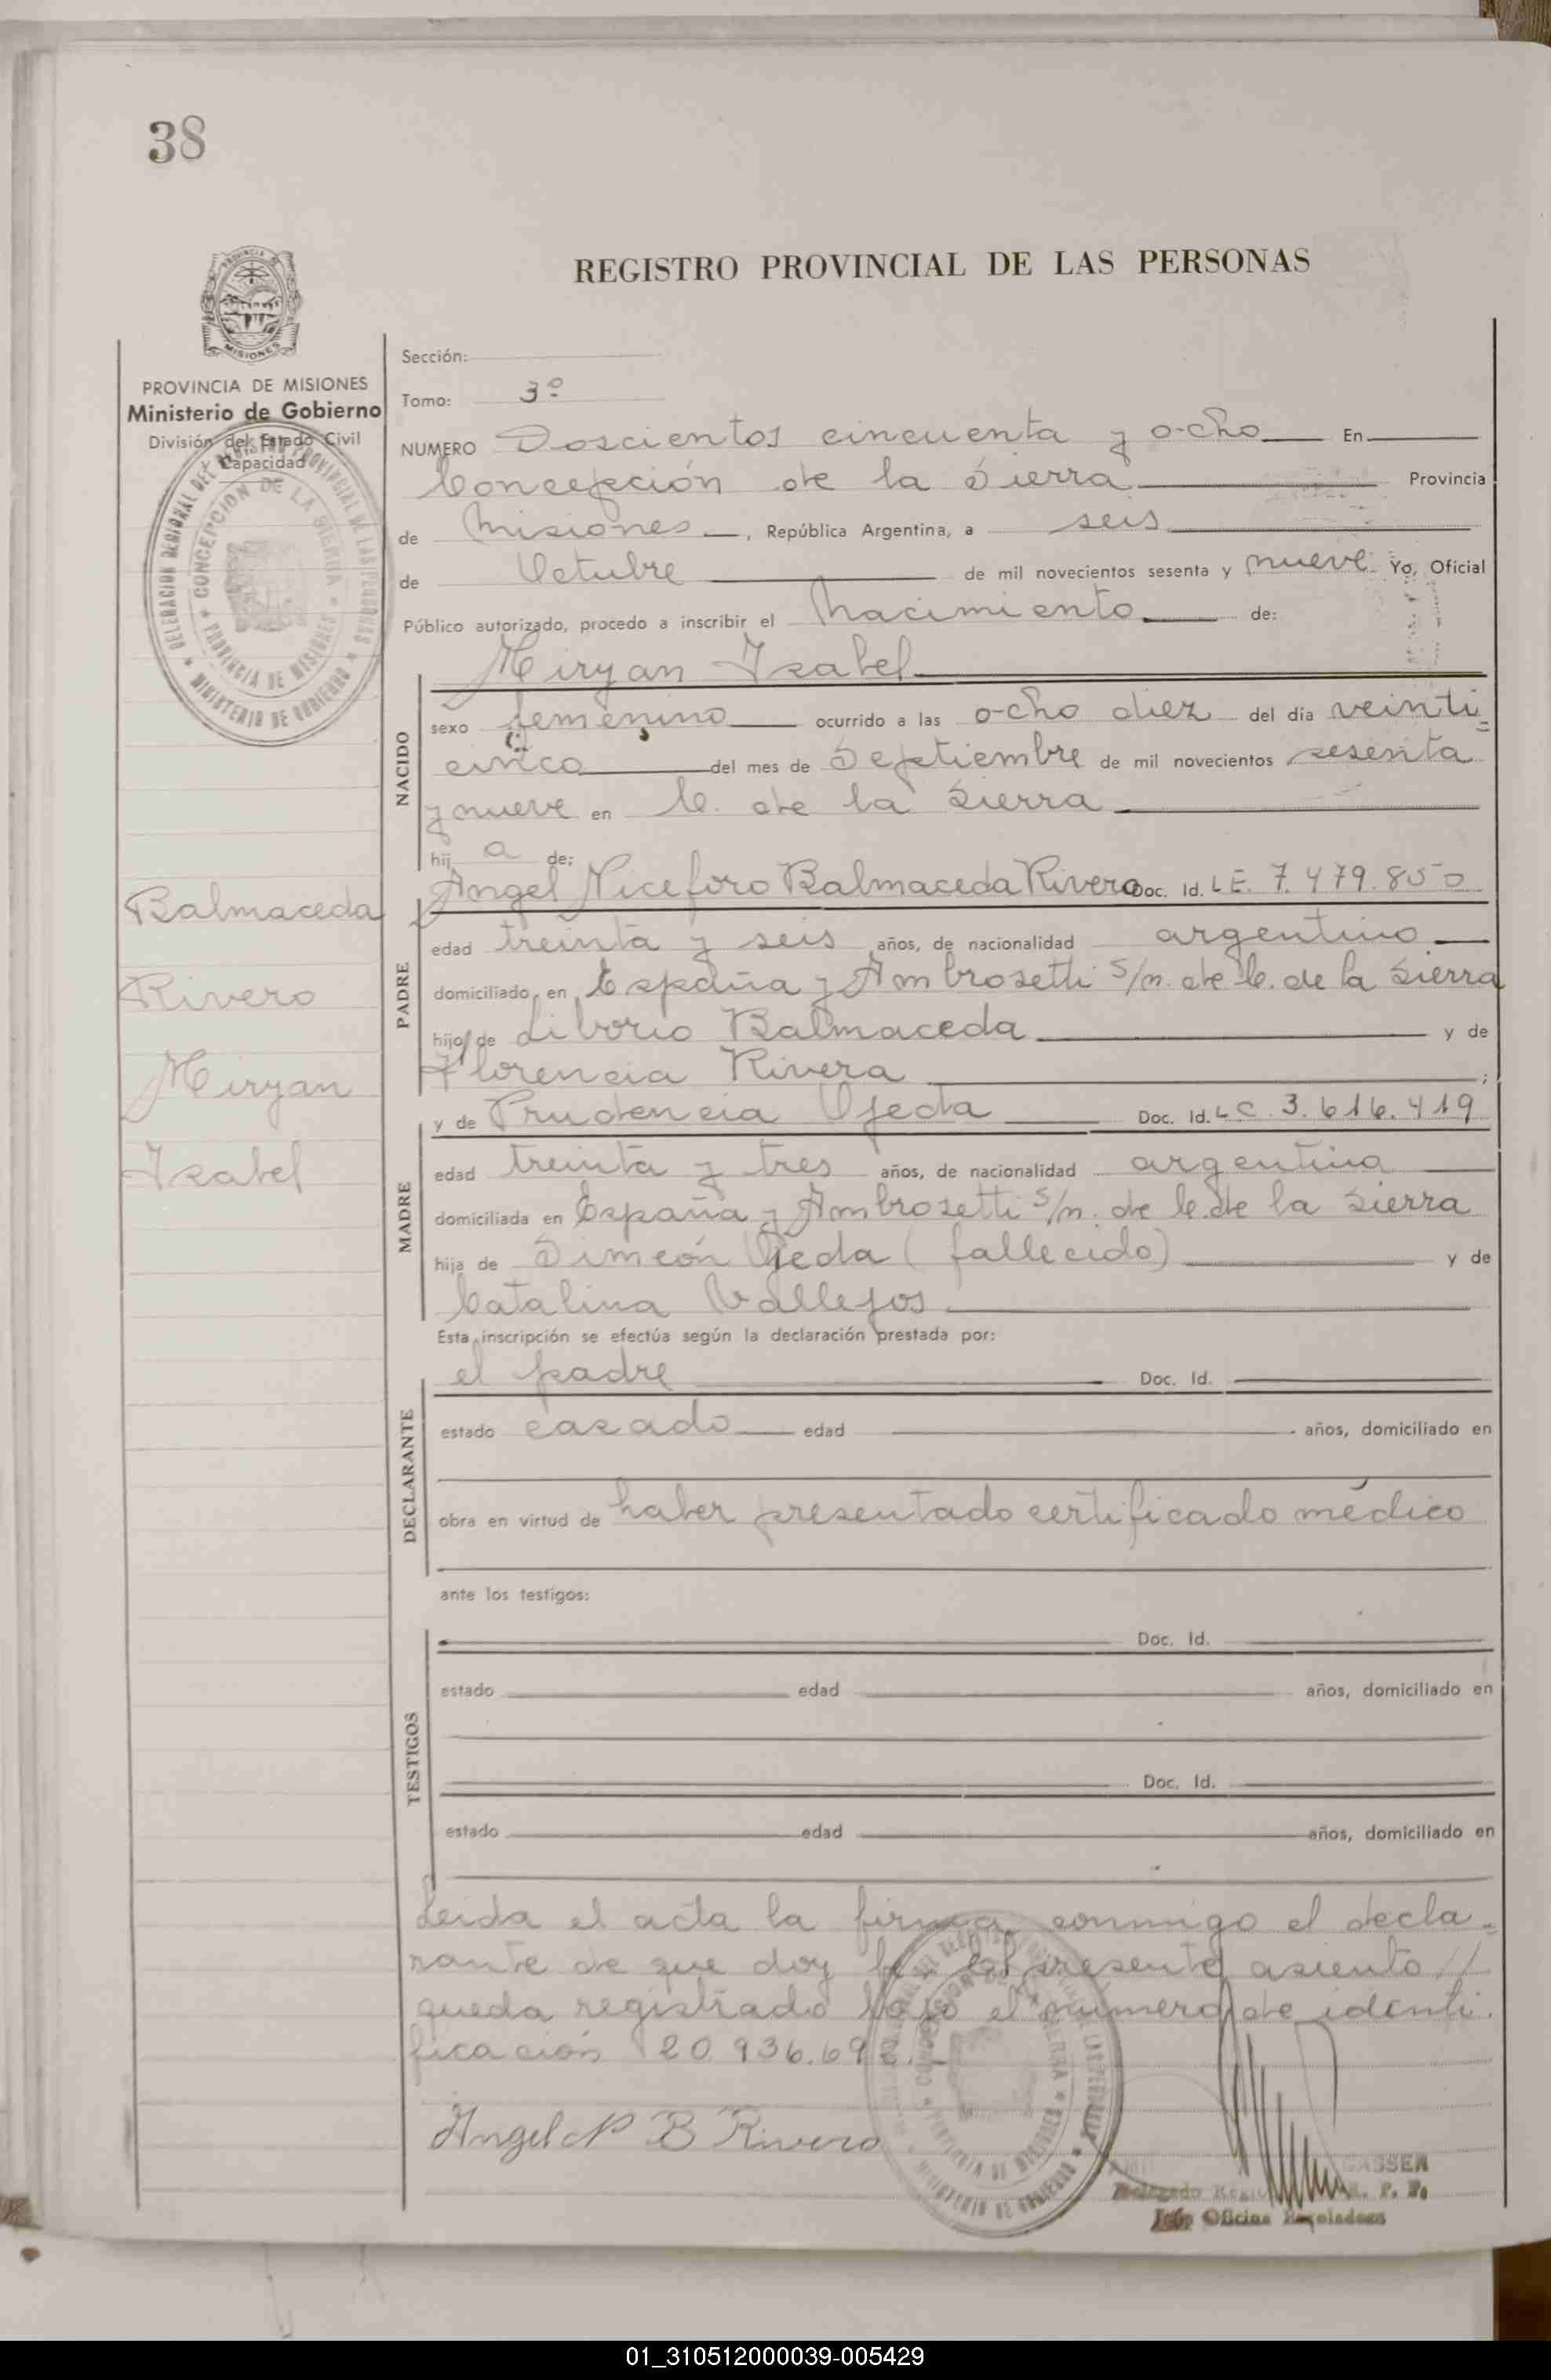 38
PROVINCIA
MISIONES
REGISTRO PROVINCIAL DE LAS PERSONAS
PROVINCIA DE MISIONES
Ministerio de Gobierno
División del Estado Civil
Capacidad
DELEGACION REGIONAL DEL REGISTRO PROVINCIAL DE LAS PERSONAS
CONCEPCION DE LA SIERRA
PROVINCIA DE MISIONES
MINISTERIO DE GOBIERNO
Balmaceda
Rivero
Miryan
Isabel
Sección:
Tomo: 3º
NUMERO Doscientos cincuenta y ocho En
Concepción de la Sierra Provincia
de Misiones, República Argentina, a seis
de Octubre de mil novecientos sesenta y nueve Yo, Oficial
Público autorizado, procedo a inscribir el Nacimiento de:
Miryan Isabel
NACIDO
sexo femenino ocurrido a las ocho diez del día veinti
cinco del mes de Septiembre de mil novecientos sesenta
y nueve en C. de la Sierra
hija de:
Angel Niceforo Balmaceda Rivero Doc. Id. L E. 7.479.850
PADRE
edad treinta y seis años, de nacionalidad argentino
domiciliado en España y Ambrosetti s/n. de C. de la Sierra
hijo de Liborio Balmaceda y de
Florencia Rivera;
MADRE
y de Prudencia Ojeda Doc. Id. L C. 3.616.419
edad treinta y tres años, de nacionalidad argentina
domiciliada en España y Ambrosetti s/n. de C. de la Sierra
hija de Simeón Ojeda (fallecido) y de
Catalina Vallejos
Esta inscripción se efectúa según la declaración prestada por:
DECLARANTE
el padre Doc. Id.
estado casado edad años, domiciliado en
obra en virtud de haber presentado certificado médico
ante los testigos:
TESTIGOS
Doc. Id.
estado edad años, domiciliado en
Doc. Id.
estado edad años, domiciliado en
Leida el acta la firma conmigo el decla-
rante de que doy fe. el presente asiento //
queda registrado bajo el número de identi.
ficación 20.936.69
Angel N B Rivero
GASSEN
Delegado
Jefe Oficina
01_310512000039-005429